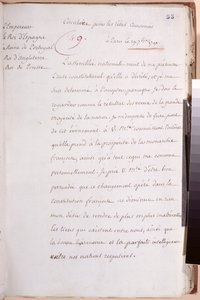 33
Circulaire pour les têtes Couronnées
L'Empereur
le Roi d'Espagne
Reine de Portugal
Roi d'Angleterre
Roi de Prusse
N.° 9.
à Paris le 19 7bre
L'assemblée nationale vient de me présenter
l'acte constitutionnel qu'elle a décrété; et j'ai
me déterminé à l'accepter, parce que je dois le
regarder comme le résultat des voeux de la grande
majorité de la nation. je m'empresse de faire part de
cet événement à V. M.té connaissant l'intérêt
qu'elle prend à la prospérité de la monarchie
française, ainsi qu'à tout ce qui me concerne
personnellement. Je prie V. M.té d'être bien
persuadée que le changement opéré dans la
constitution française ne diminue en rien
mon désir de rendre de plus en plus inaltérables
les liens qui existent entre nous, ainsi que
la bonne harmonie et la parfaite intelligence
entre nos nations respectives.